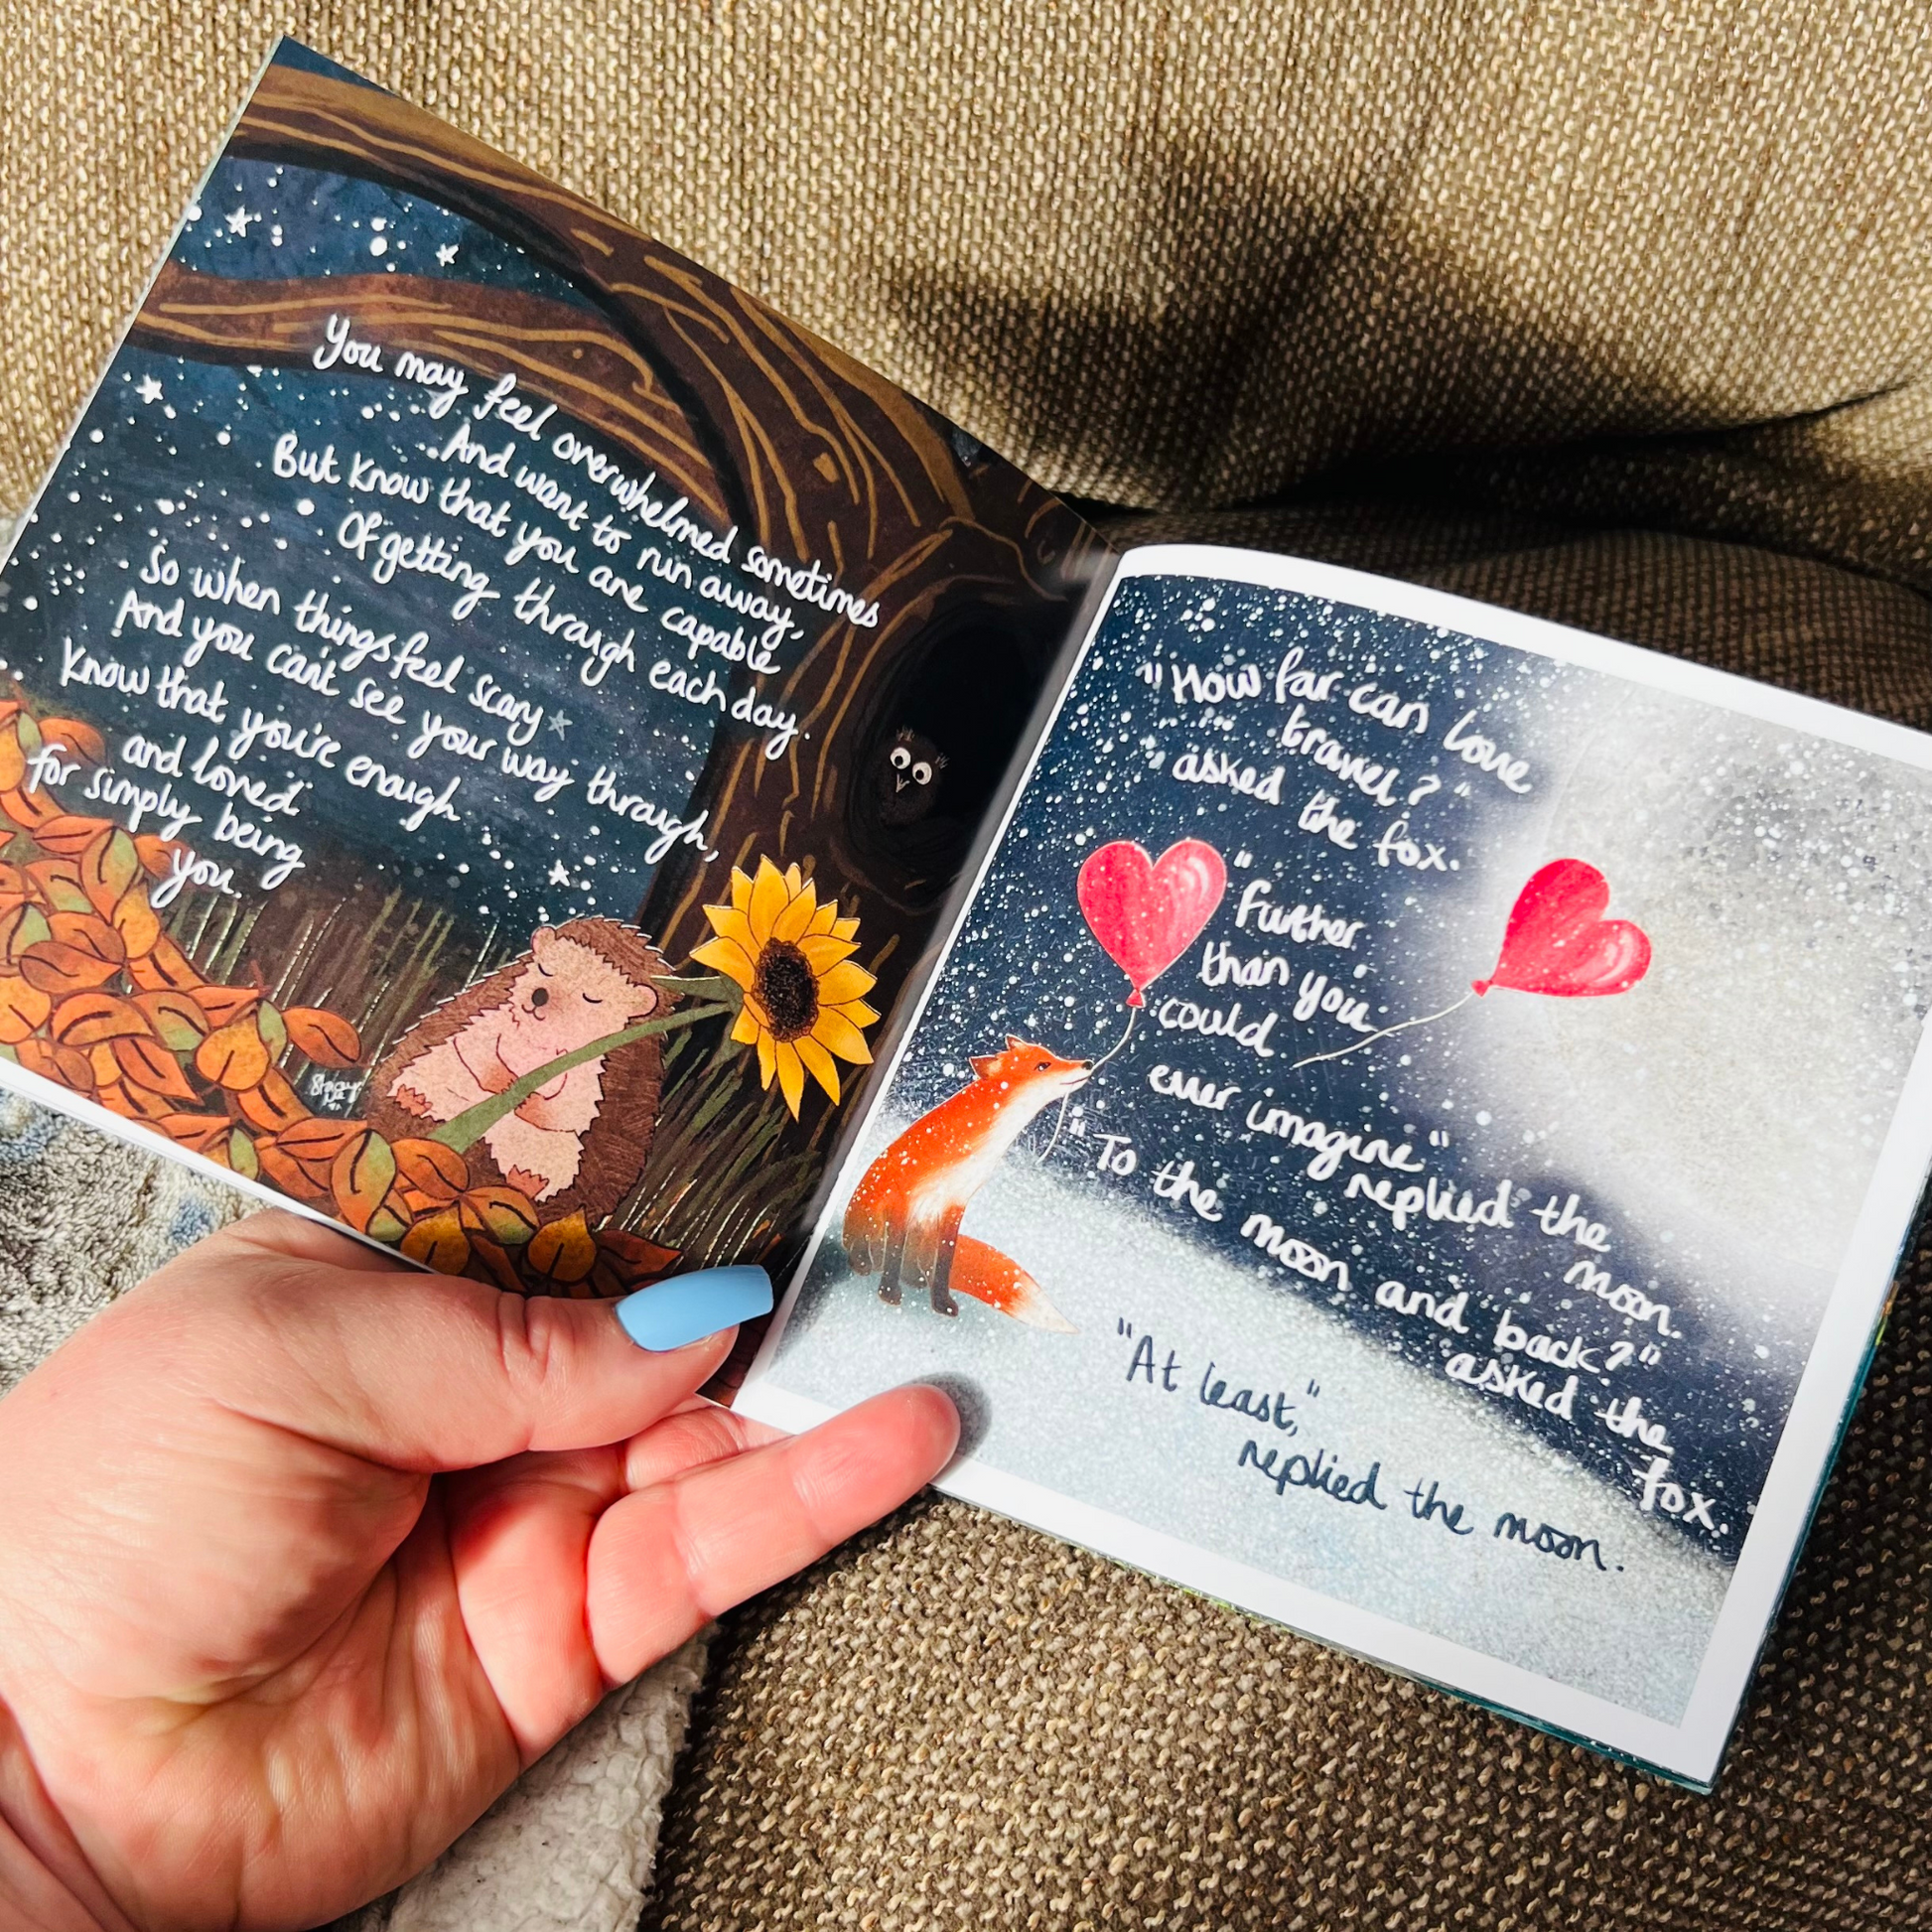 You may feel overwhelmed sometimes
And want to run away,
But know that you are capable
Of getting through each day.
So when things feel scary
And you can't see your way through,
Know that you're enough
and loved
for simply being
you.
"How far can love
travel?"
asked the fox.
"Further
than you
could
ever imagine"
replied the
moon.
"To the moon and back?"
asked the
fox.
"At least",
replied the moon.